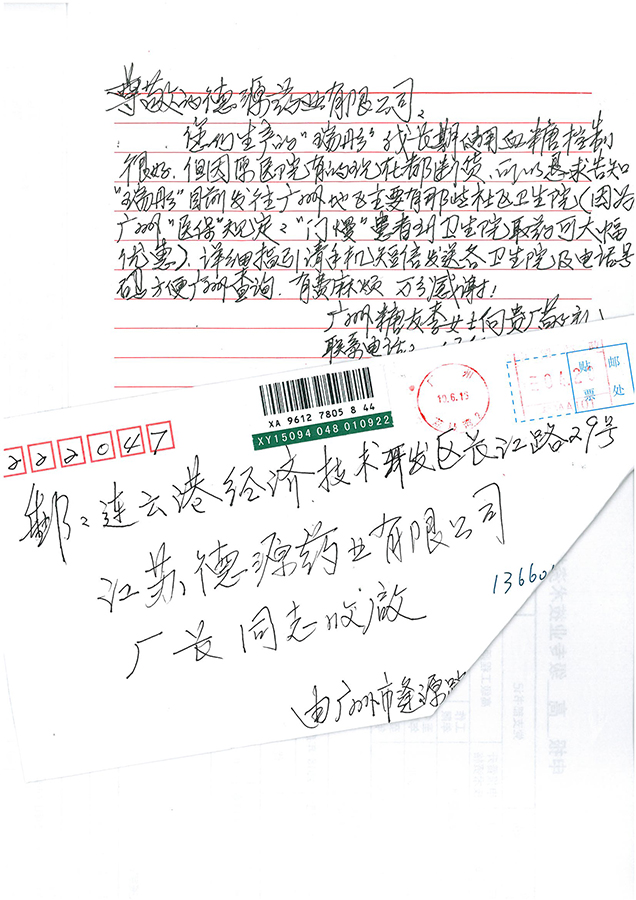 尊敬的德源药业有限公司:
您们生产的"瑞彤"我长期使用血糖控制
很好.但因原医院有的现在都断货.可以恳求告知
"瑞彤"目前发往广州地区主要有那些社区卫生院(因为
广州"医保"规定:"门慢"患者到卫生院取药可大幅
优惠).详细指引请手机短信发送各卫生院及电话号
码方便广州查询.有费麻烦 万分感谢!
广州糖友李女士向贵厂敬礼!
联系电话:
XA 9612 7805 8 44
XY15094 048 010922
广州
19.6.19
邮
贴 处
票
222047
邮:连云港经济技术开发区长江路29号
江苏德源药业有限公司
厂长同志收启
13660
由广州市逢源路